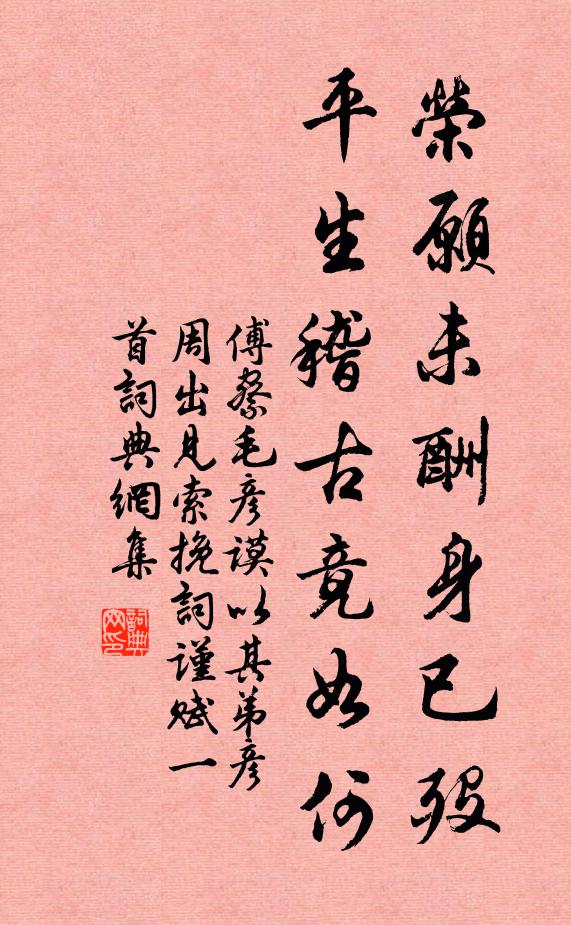 榮願未酬身已歿
平生稽古竟如何
傅察毛彥謨以其弟彥
周出見索挽詞謹賦一
首詞典網集
詞典
网印